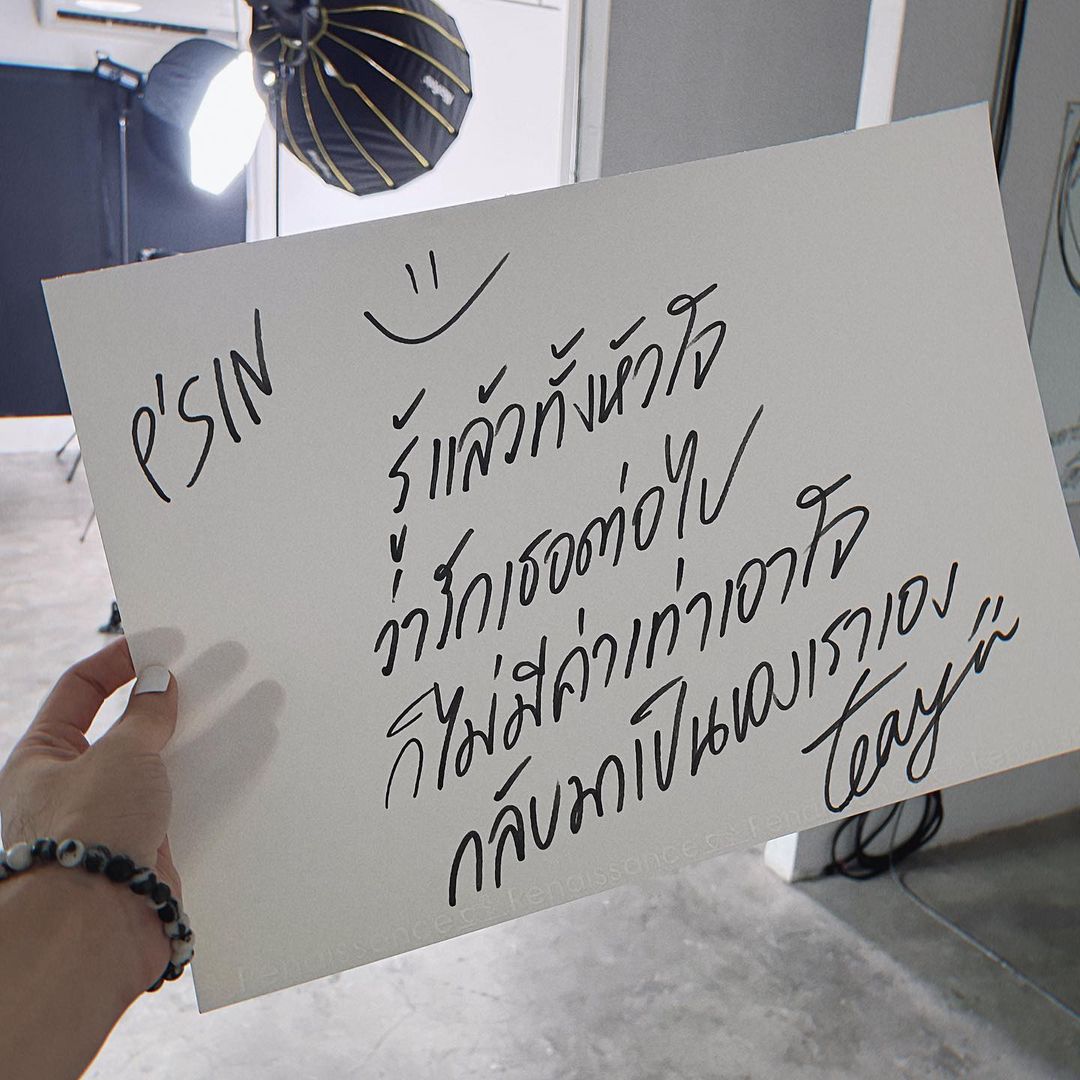 P'SIN
รู้แล้วทั้งหัวใจ
ว่ารักเธอต่อไป
ก็ไม่มีค่าเท่าเอาใจ
กลับมาเป็นของเราเอง
teay
Renaissance